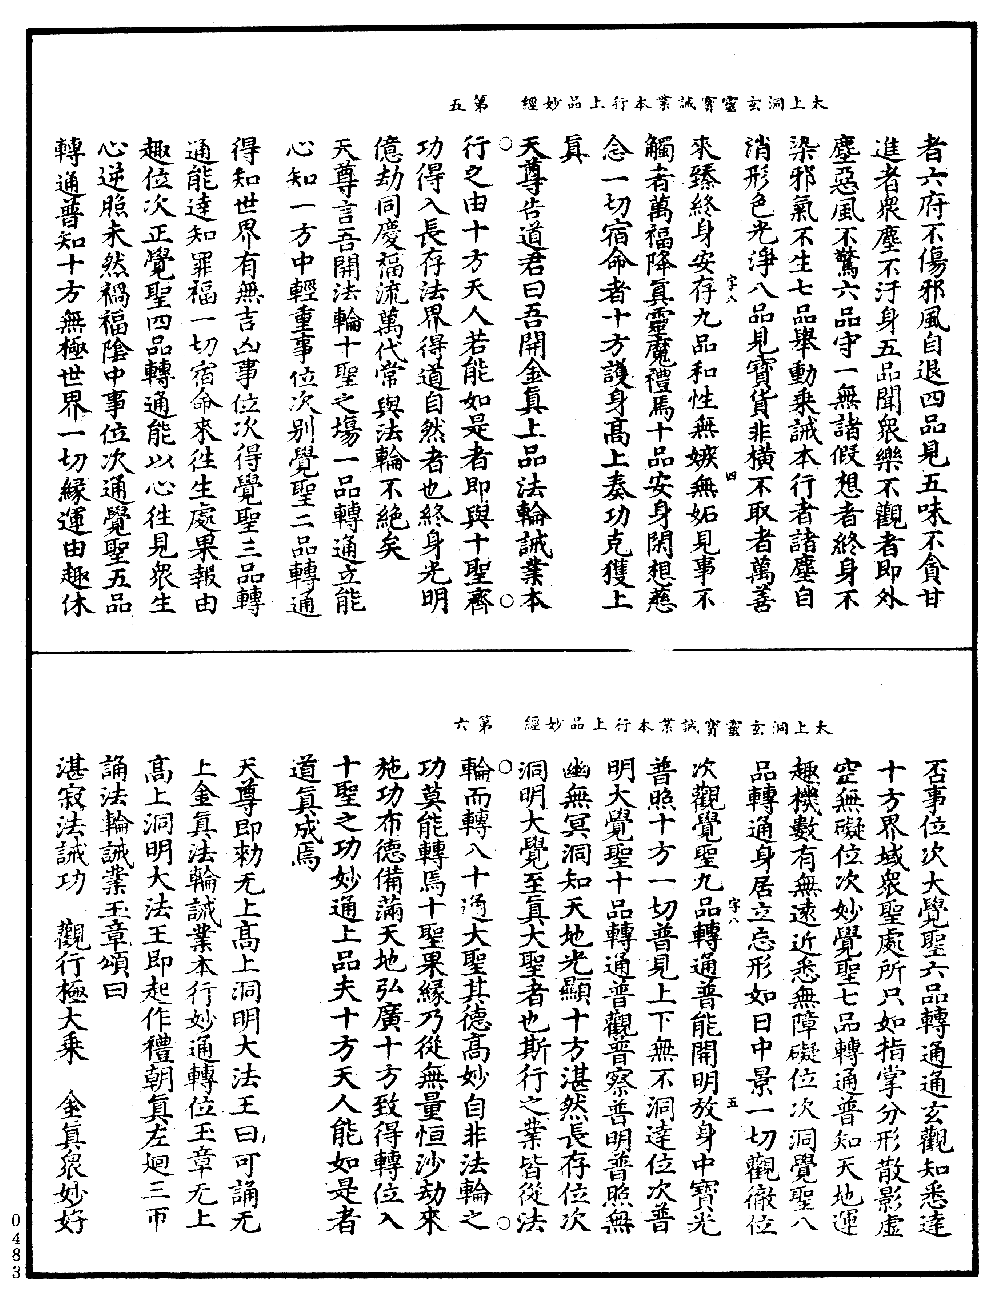 太上洞玄靈寶誡業本行上品妙經　第五
者六府不傷邪風自退四品見五味不貪甘
進者衆塵不汙身五品聞衆樂不觀者即外
塵惡風不驚六品守一無諸假想者終身不
染邪氣不生七品舉動乘誡本行者諸塵自
消形色光淨八品見寶貨非橫不取者萬善
字八　四
來臻終身安存九品和性無嫉無妬見事不
觸者萬福降真靈魔禮焉十品安身閑想慈
念一切宿命者十方護身高上奏功克獲上
真
天尊告道君曰吾開金真上品法輪誡業本
行之由十方天人若能如是者即與十聖齊
功得入長存法界得道自然者也終身光明
億劫同慶福流萬代常與法輪不絕矣
天尊言吾開法輪十聖之場一品轉通立能
心知一方中輕重事位次別覺聖二品轉通
得知世界有無吉凶事位次得覺聖三品轉
通能達知罪福一切宿命來往生處果報由
趣位次正覺聖四品轉通能以心往見衆生
心逆照未然禍福陰中事位次通覺聖五品
轉通普知十方無極世界一切緣運由趣休
太上洞玄靈寶誡業本行上品妙經　第六
否事位次大覺聖六品轉通通玄觀知悉達
十方界域衆聖處所只如指掌分形散影虛
空無礙位次妙覺聖七品轉通普知天地運
趣機數有無遠近悉無障礙位次洞覺聖八
品轉通身居立忘形如日中景一切觀徹位
字八　五
次觀覺聖九品轉通普能開明放身中寶光
普照十方一切普見上下無不洞達位次普
明大覺聖十品轉通普觀普察普明普照無
幽無冥洞知天地光顯十方湛然長存位次
洞明大覺至真大聖者也斯行之業皆從法
輪而轉八十過大聖其德高妙自非法輪之
功莫能轉焉十聖果緣乃從無量恒沙劫來
施功布德備滿天地弘廣十方致得轉位入
十聖之功妙通上品夫十方天人能如是者
道真成焉
天尊即勑无上高上洞明大法王曰可誦无
上金真法輪誡業本行妙通轉位玉章无上
高上洞明大法王即起作禮朝真左廻三帀
誦法輪誡業玉章頌曰
湛寂法誡功　觀行極大乘　金真衆妙好
0483